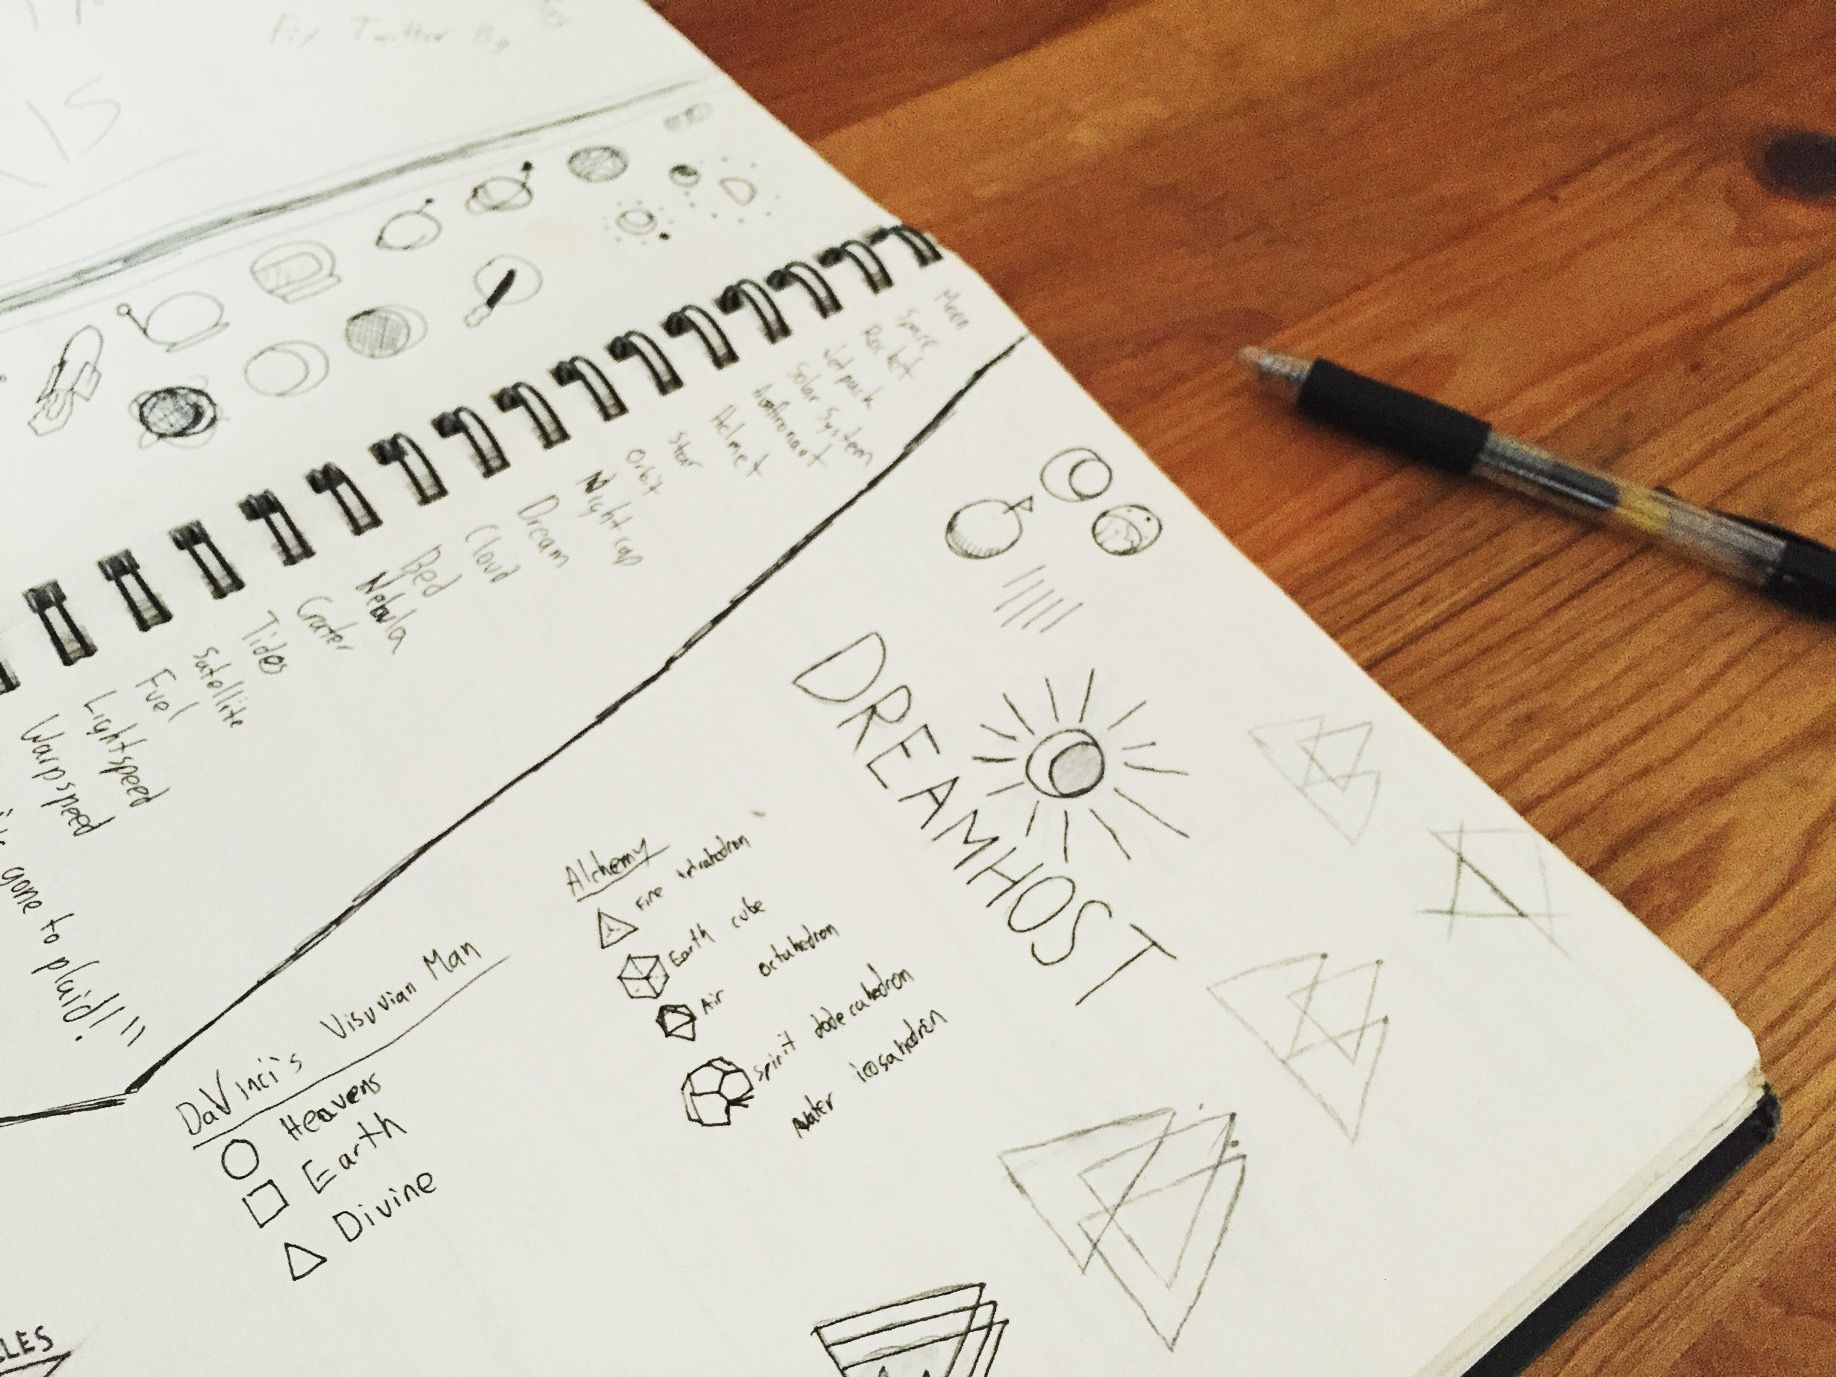 Fix Twitter Bg
IS
Moon
Space
Rocket
Jetpack
Solar System
Astronaut
Helmet
Star
Orbit
Nightcap
Dream
Cloud
Bed
Nebula
Crater
Tides
Satellite
Fuel
Lightspeed
Warpspeed
gone to plaid!"
DREAMHOST
Alchemy
Fire tetrahedron
Earth cube
Air octahedron
Spirit dodecahedron
Water icosahedron
DaVinci's Visuvian Man
Heavens
Earth
Divine
CLES